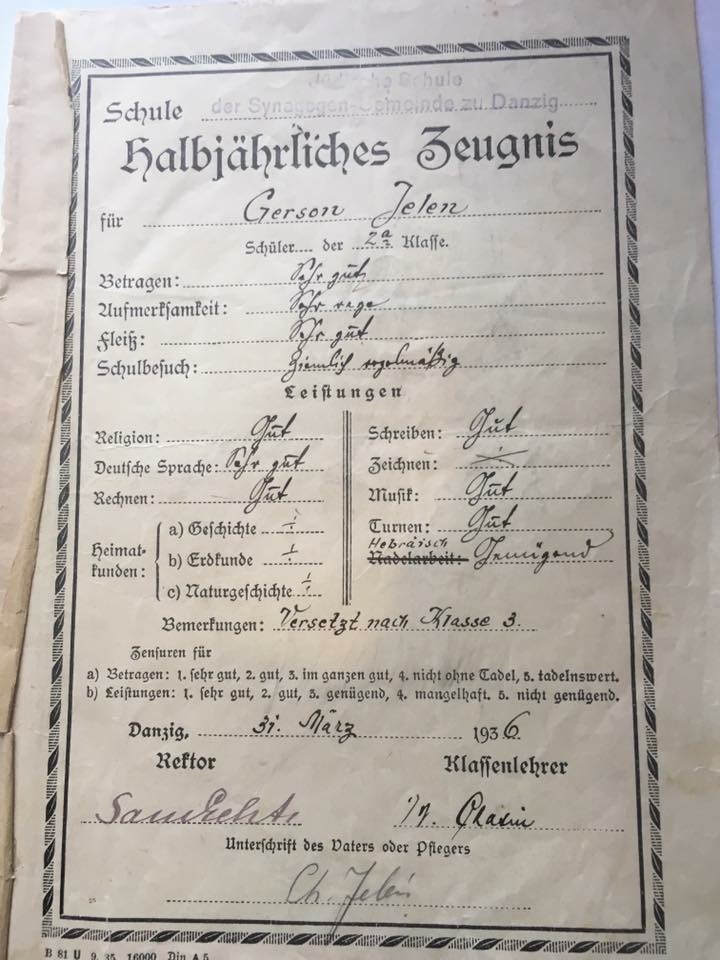 Schule Jüdische Schule
der Synagogen-Gemeinde zu Danzig
Halbjährliches Zeugnis
für Gerson Jelen
Schüler.... der 2a Klasse.
Betragen: Sehr gut
Aufmerksamkeit: Sehr rege
Fleiß: Sehr gut
Schulbesuch: Ziemlich regelmäßig
Leistungen
Religion: Gut
Deutsche Sprache: Sehr gut
Rechnen: Gut
Heimatkunden:
a) Geschichte
b) Erdkunde
c) Naturgeschichte
Schreiben: Gut
Zeichnen:
Musik: Gut
Turnen: Gut
Hebräisch
Nadelarbeit: Genügend
Bemerkungen: Versetzt nach Klasse 3.
Zensuren für
a) Betragen: 1. sehr gut, 2. gut, 3. im ganzen gut, 4. nicht ohne Tadel, 5. tadelnswert.
b) Leistungen: 1. sehr gut, 2. gut, 3. genügend, 4. mangelhaft. 5. nicht genügend.
Danzig, 31. März 1936
Rektor Klassenlehrer
Unterschrift des Vaters oder Pflegers
Ch. Jelen
B 81 U 9. 35. 16000 Din A 5